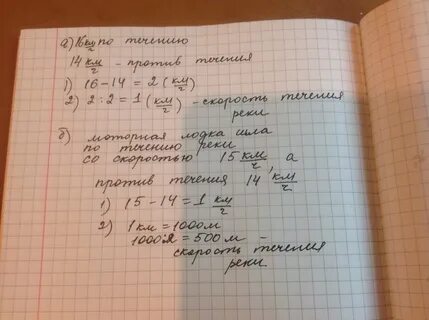 а) 16 км/ч по течению
14 км/ч - против течения
1) 16-14 = 2 (км/ч)
2) 2:2 = 1 (км/ч) - скорость течения
реки
б) моторная лодка шла
по течению реки
со скоростью 15 км/ч, а
против течения 14 км/ч
1) 15-14 = 1 км/ч
2) 1км = 1000м
1000:2 = 500 м -
скорость течения
реки